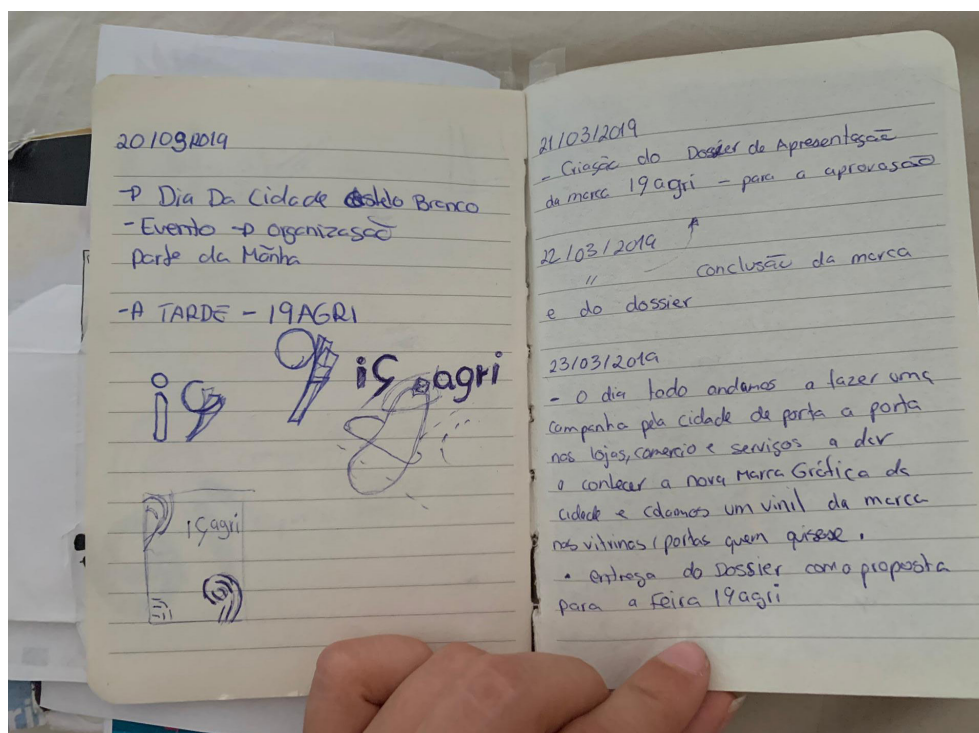 20/03/2019
→ Dia Da Cidade Castelo Branco
- Evento → organização
parte da Mãnha
- A TARDE - 19AGRI
i9
9
i9 agri
i9agri
21/03/2019
- Criação do Dossier de Apresentação
da marca 19agri - para a aprovasão
22/03/2019 ↑
" conclusão da marca
e do dossier
23/03/2019
- O dia todo andamos a fazer uma
campanha pela cidade de porta a porta
nas lojas, comercio e serviços a dar
a conhecer a nova Marca Gráfica da
cidade e colamos um vinil da marca
nas vitrinas / portas quem quisese.
• entrega do Dossier como proposta
para a Feira 19agri